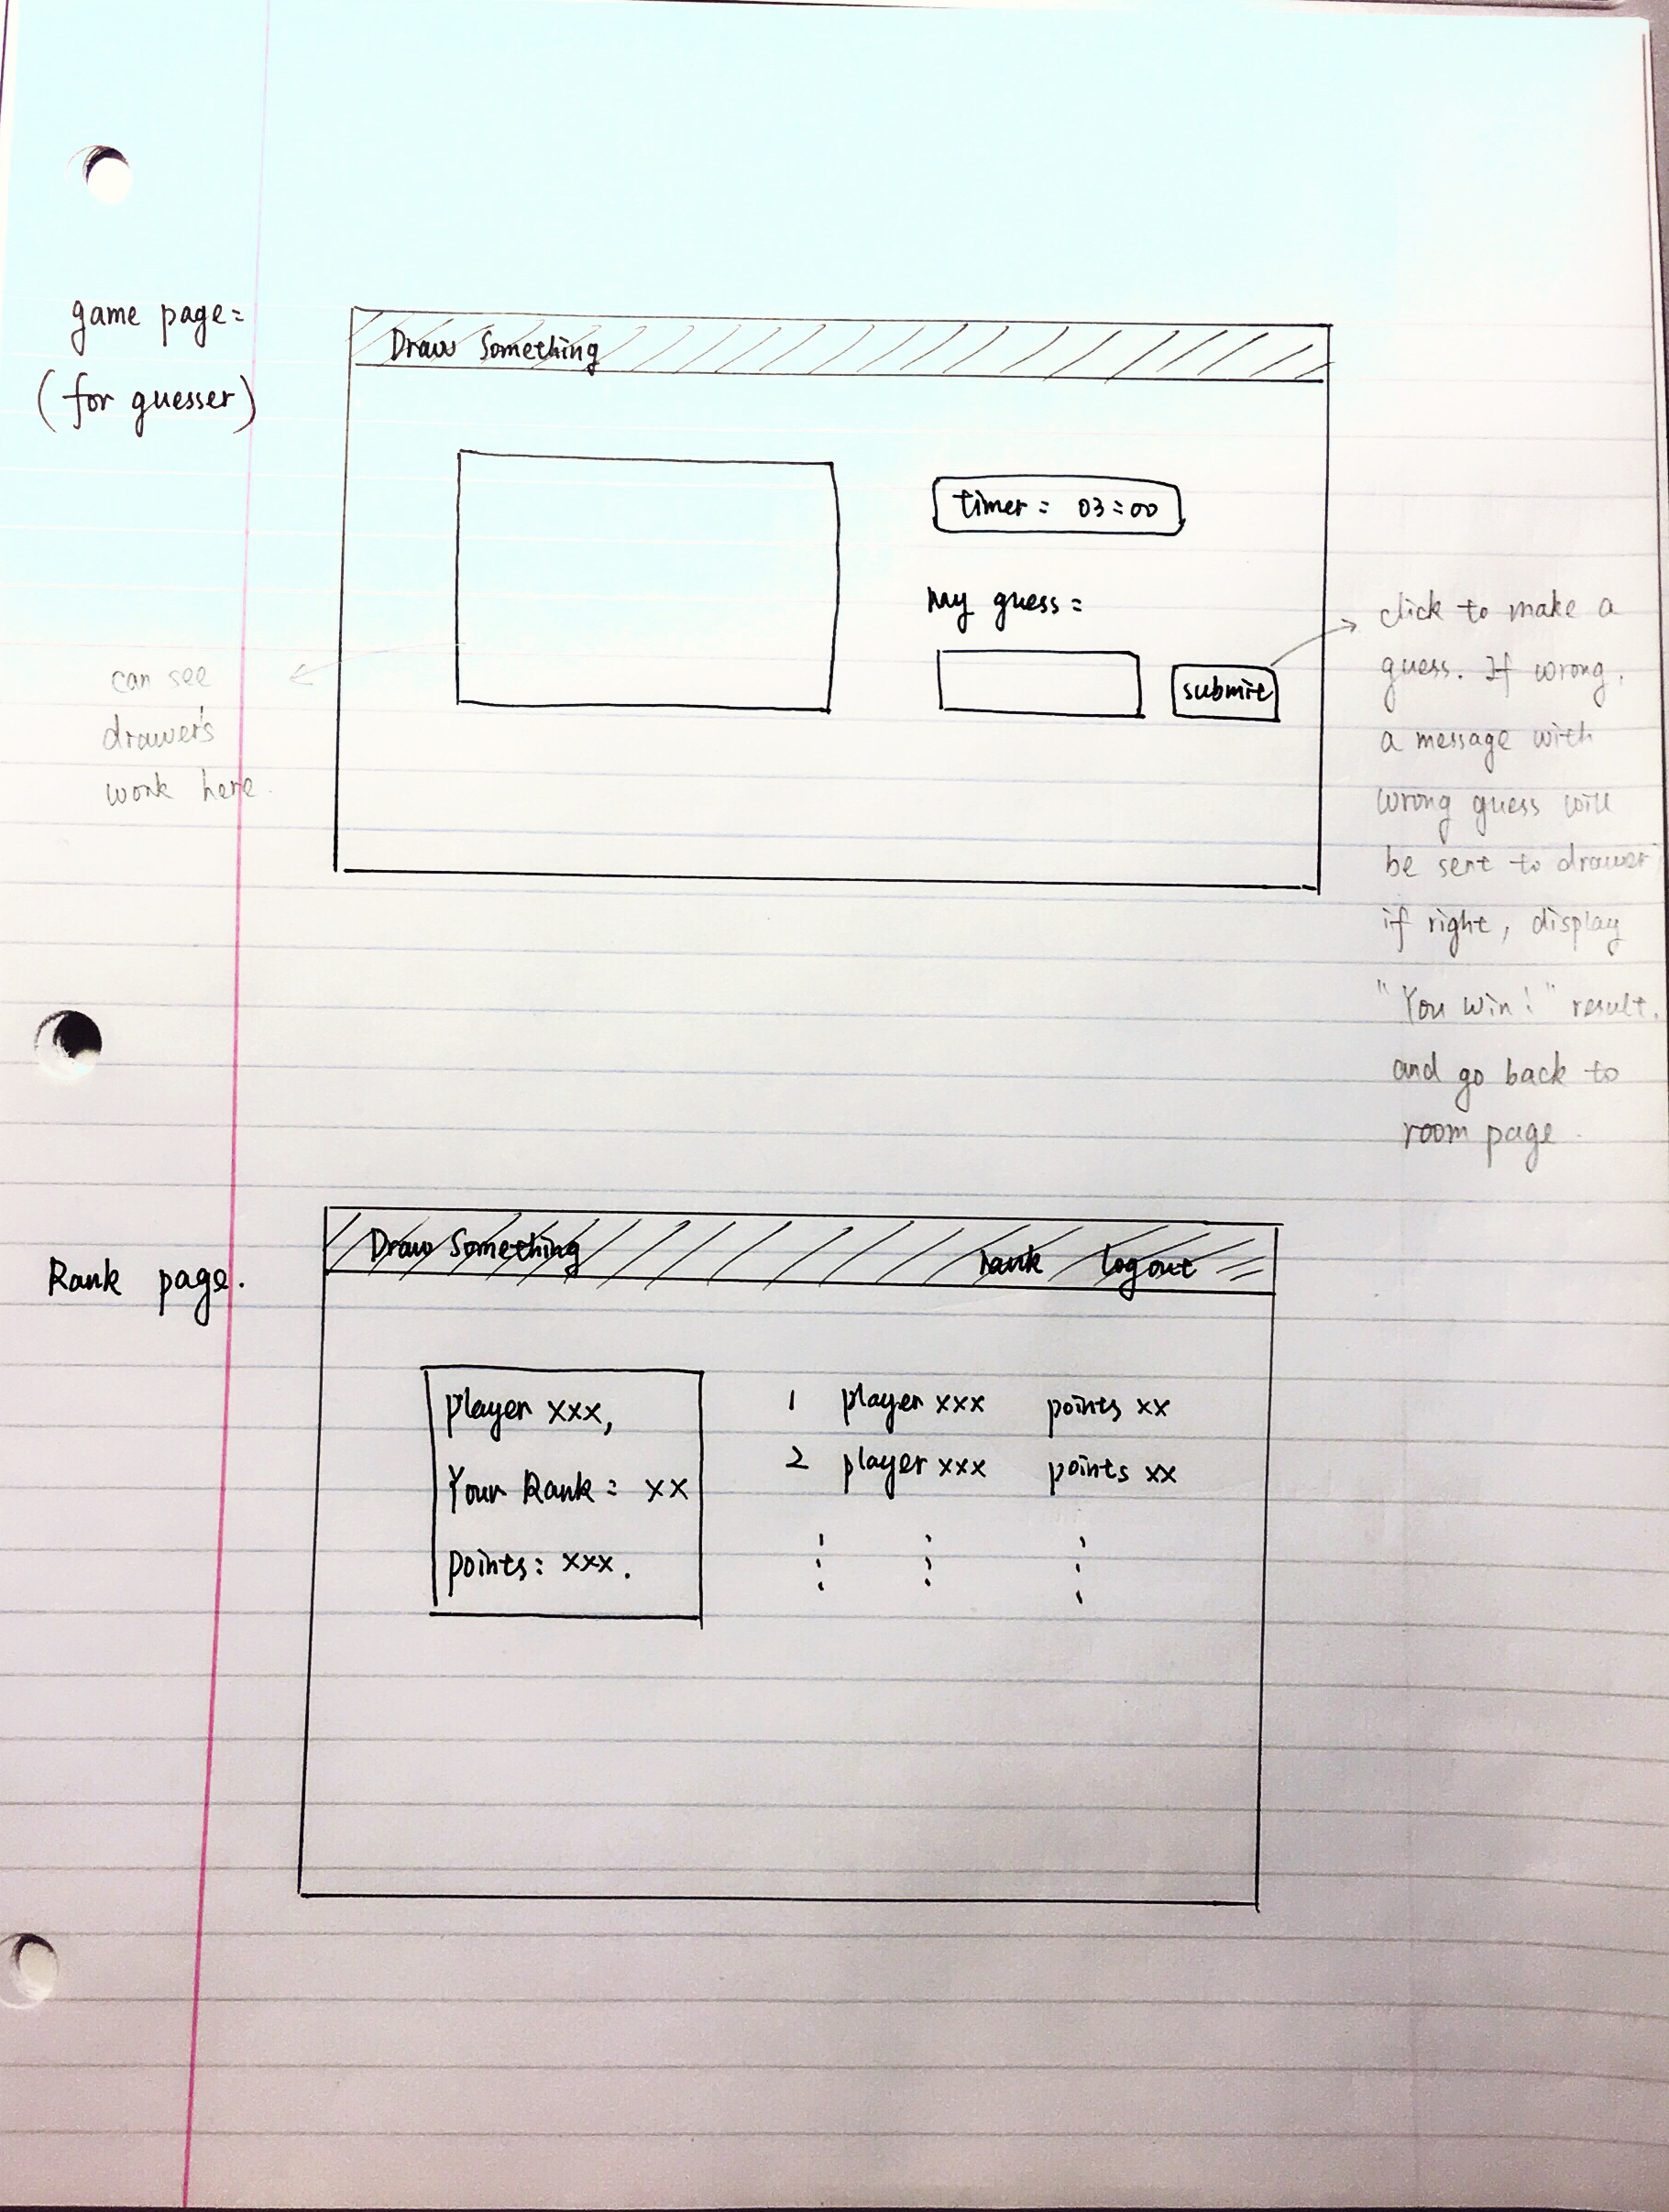 game page:
(for guesser)
Draw Something
timer: 03:00
My guess:
submit
can see
drawer's
work here.
click to make a
guess. If wrong,
a message with
wrong guess will
be sent to drawer
if right, display
"You win!" result.
and go back to
room page.
Rank page.
Draw Something rank logout
player xxx,
Your Rank: xx
points: xxx.
1 player xxx points xx
2 player xxx points xx